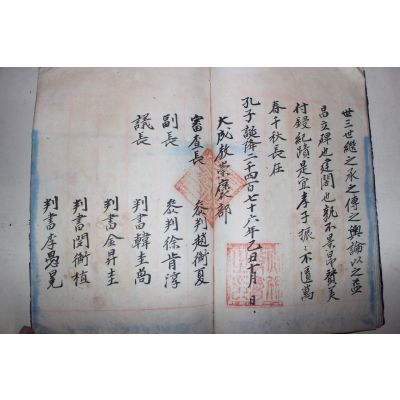 世三世繼之承之傳之輿論以之益
昌立碑也建閣也孰不景昂贊美
付錽紀蹟是宜孝子振振不匱萬
春千秋長在
孔子誕降二千四百七十六年乙丑十月 日
大成敎崇應部
審査長 參判趙衡夏
副長 參判徐肯淳
議長 判書韓圭卨
判書金昇圭
判書閔衡植
判書李愚冕